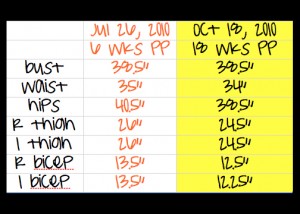 Jul 26, 2010 Oct 18, 2010
6 wks PP 18 wks PP
bust 38.5" 38.5"
waist 35" 34"
hips 40.5" 38.5"
R thigh 26" 24.5"
l thigh 26" 24.5"
R bicep 13.5" 12.5"
l bicep 13.5" 12.25"